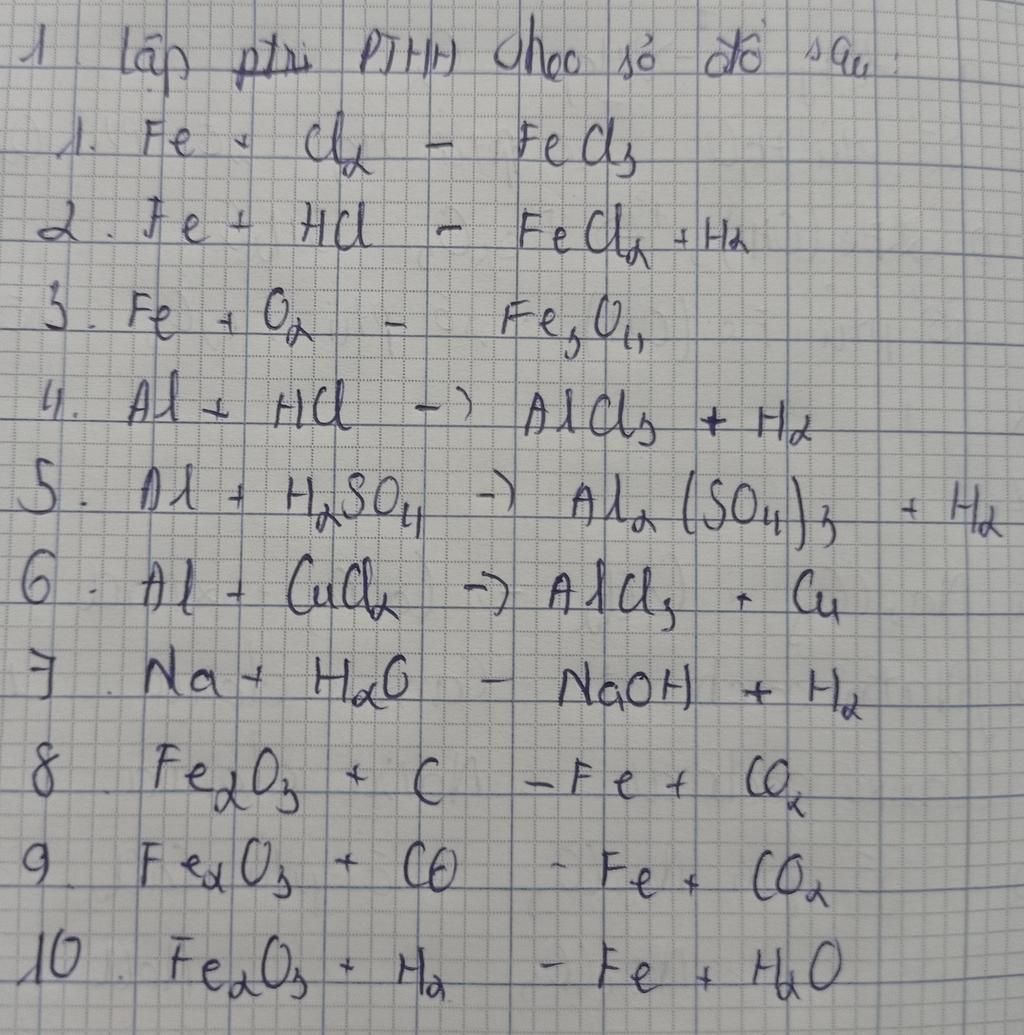 1 lập PTHH theo sơ đồ sau:
1. Fe + Cl2 - FeCl3
2. Fe + HCl - FeCl2 + H2
3. Fe + O2 - Fe3O4
4. Al + HCl -> AlCl3 + H2
5. Al + H2SO4 -> Al2(SO4)3 + H2
6. Al + CuCl2 -> AlCl3 + Cu
7. Na + H2O - NaOH + H2
8 Fe2O3 + C - Fe + CO2
9. Fe2O3 + CO - Fe + CO2
10. Fe2O3 + H2 - Fe + H2O